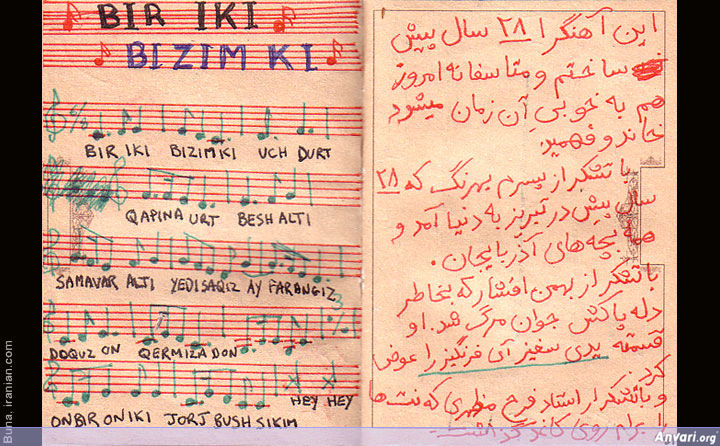 BIR IKI
BIZIM KI
BIR IKI BIZIMKI UCH DURT
QAPINA URT BESH ALTI
SAMAVAR ALTI YEDISAQIZ AY FARANGIZ
DOQUZ ON QERMIZA DON
HEY HEY
ONBIR ONIKI JORJ BUSH SIKIM
این آهنگرا ۲۸ سال پیش
ساختم و متاسفانه امروز
هم به خوبیِ آن زمان میشود
خاند و فهمید.
با تشکر از پسرم بهرنگ که ۲۸
سال پیش در تبریز به دنیا آمد و
همه بچه های آذربایجان.
با تشکر از بهمن افشار که بخاطر
دله پاکش جوان مرگ شد. او
قسمته یدی سغیز آی فرنگیز را عوض
کرد.
و با تشکر از استاد فرخ مظهری که نت ها
را برام روی کاغذ گذاشت.
Buna, iranian.com
Anvari.org